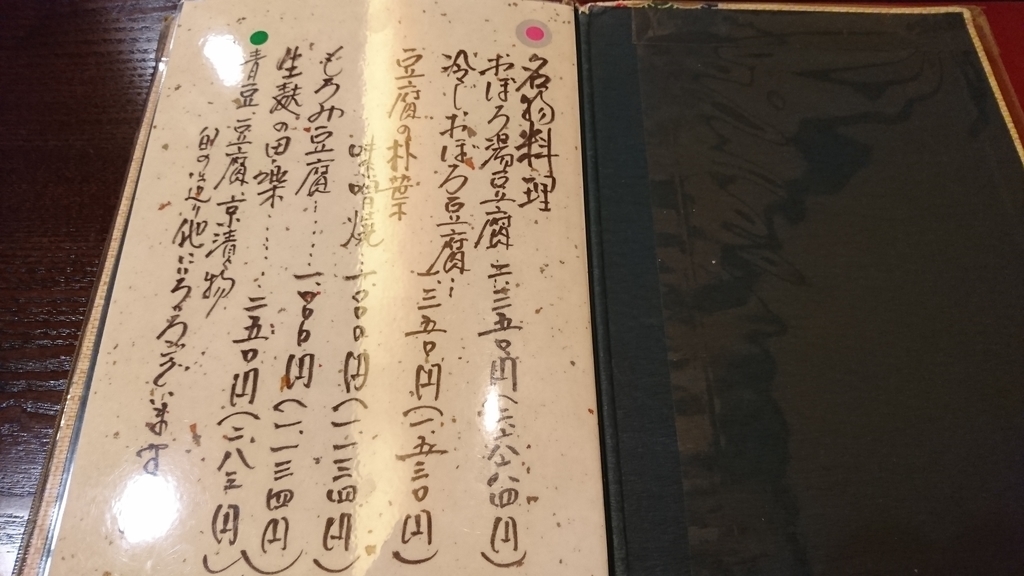 名物料理
おぼろ湯豆腐 二、三五〇円(二、六六四円)
冷しおぼろ豆腐… 一、三五〇円(一、五三〇円)
豆腐の朴葉
味噌焼 一、〇〇〇円(一、一三四円)
もろみ豆腐…… 一、〇〇〇円(一、一三四円)
生麩の田楽…… 二五〇円(二八三円)
青豆豆腐 京漬物
の造り他にいろいろございます